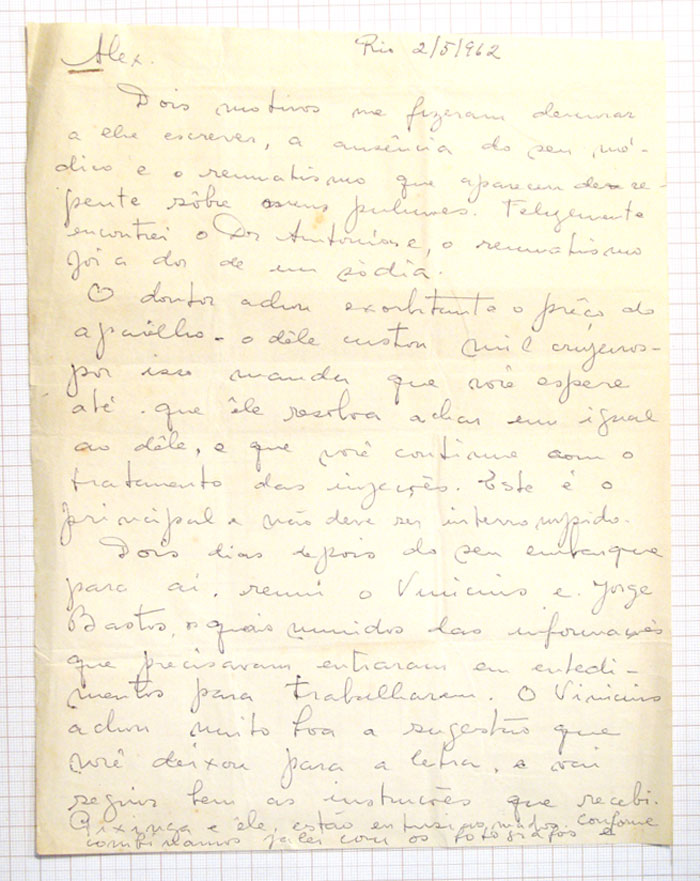 Alex.
Rio 2/5/962
Dois motivos me fizeram demorar
a lhe escrever, a ausência do seu mé-
dico e o reumatismo que apareceu de re-
pente sôbre meus pulmões. Felizmente
encontrei o Dr Antonio e, o reumatismo
foi a dor de um só dia.
O doutor achou exorbitante o prêço do
aparêlho - o dêle custou mil cruzeiros -
por isso manda que você espere
até que êle resolva achar um igual
ao dêle, e que você continue com o
tratamento das injeções. Este é o
principal e não deve ser interrompido.
Dois dias depois do seu embarque
para aí, reuni o Vinicius e Jorge
Bastos, os quais munidos das informações
que precisavam entraram em entedi-
mentos para trabalharem. O Vinicius
achou muito boa a sugestão que
você deixou para a letra, e vai
seguir bem as instruções que recebi.
Pixinga e êle, estão entusiasmados. conforme
combinamos falei com os fotógrafos e